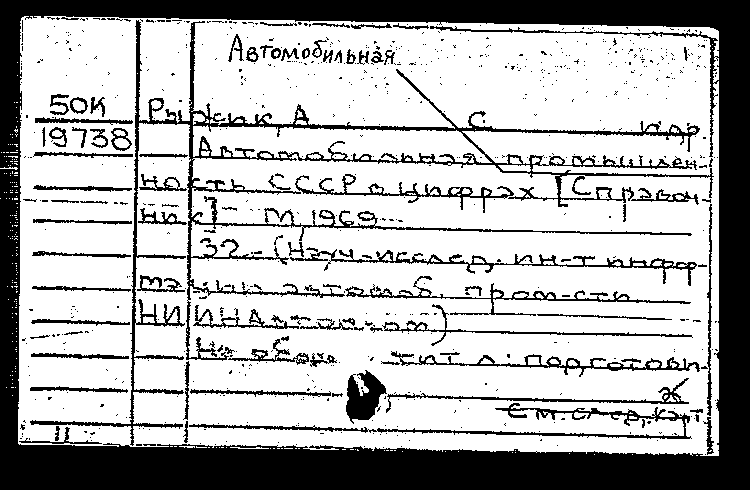 Автомобильная
50К Рыжик, А С и др.
19738 Автомобильная промышлен-
ность СССР в цифрах. [Справоч-
ник] М, 1969
32 - (Науч.-исслед. ин-т инфор-
мации автомоб. пром-сти
НИИНАвтопром)
На обор. тит л: подготови-
См. след. карт.
11